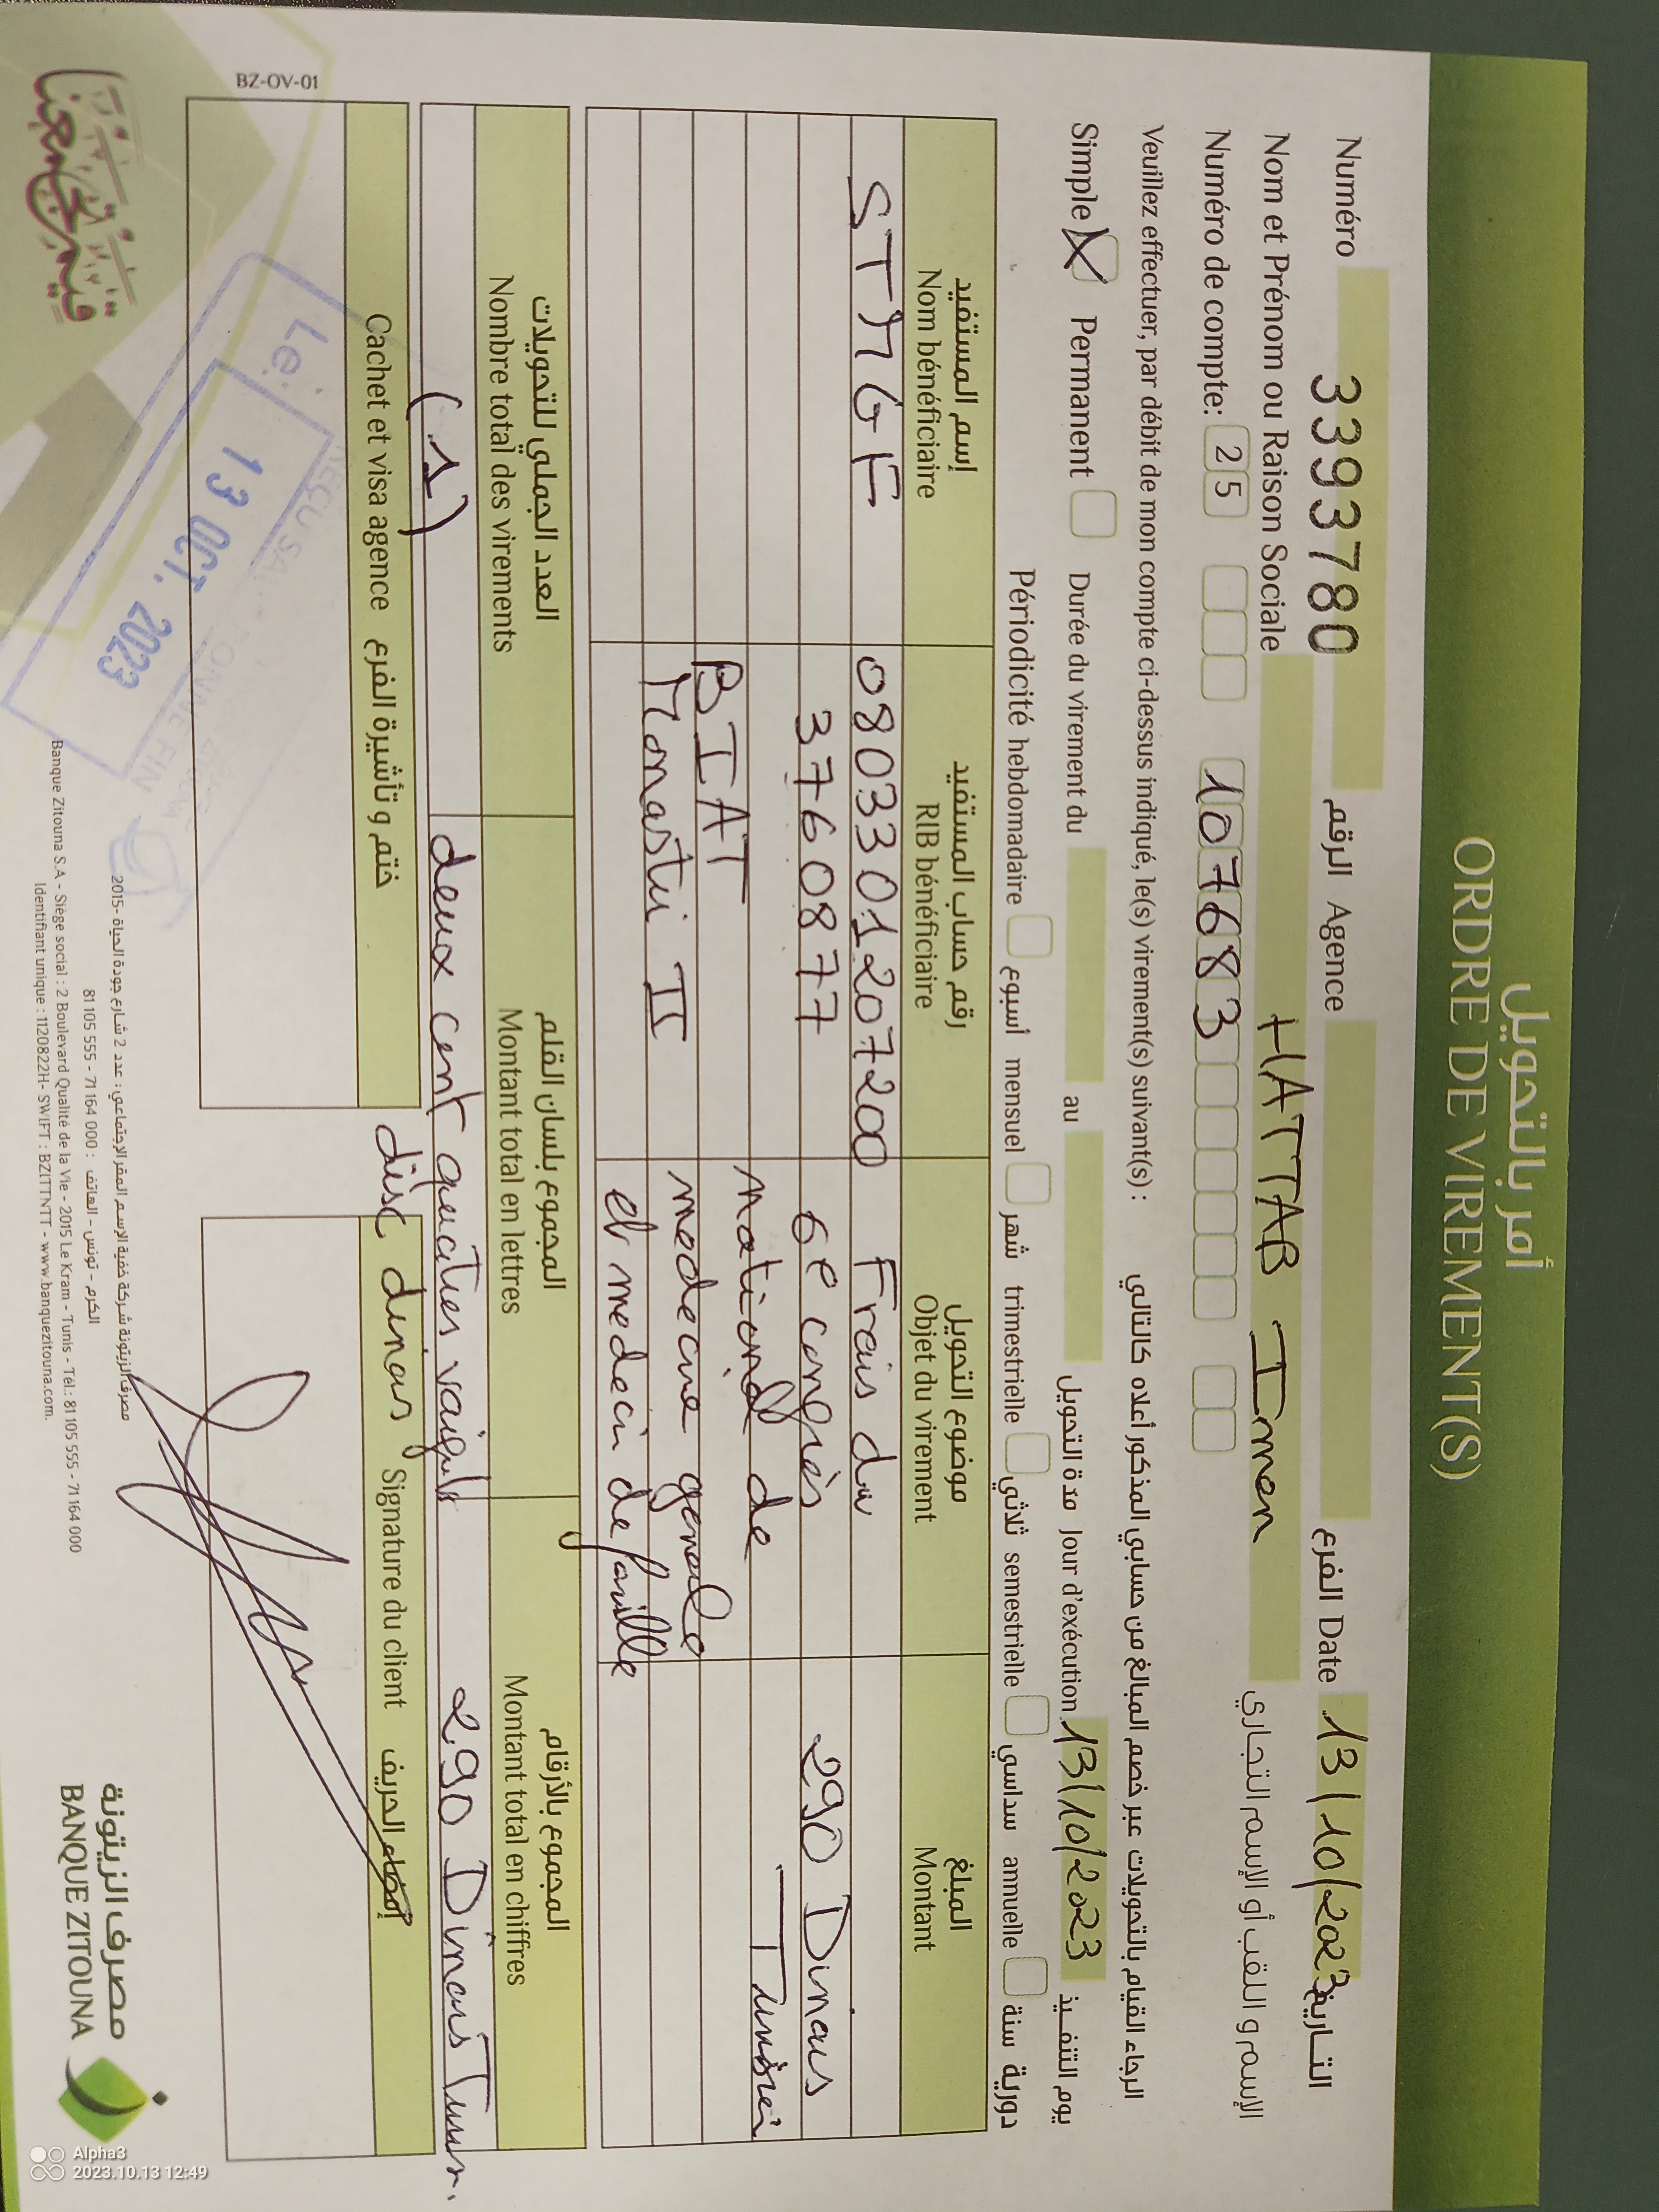 أمر بالتحويل
ORDRE DE VIREMENT(S)
Numéro 3393780 الرقم Agence الفرع Date 13/10/2023 التاريخ
Nom et Prénom ou Raison Sociale HATTAB Imen الإسم و اللقب أو الإسم التجاري
Numéro de compte: 25 107683
Veuillez effectuer, par débit de mon compte ci-dessus indiqué, le(s) virement(s) suivant(s) : الرجاء القيام بالتحويلات عبر خصم المبالغ من حسابي المذكور أعلاه كالتالي
Simple X Permanent Durée du virement du au مدة التحويل Jour d'exécution 13/10/2023 يوم التنفيذ
Périodicité hebdomadaire أسبوع mensuel شهر trimestrielle ثلاثي semestrielle سداسي annuelle دورية سنة
إسم المستفيد رقم حساب المستفيد موضوع التحويل المبلغ
Nom bénéficiaire RIB bénéficiaire Objet du virement Montant
STMGF 0803301207200 Frais du
3760877 6e congrès 290 Dinars
BIAT national de
Monastir II medecine generale
et medecin de famille
العدد الجملي للتحويلات المجموع بلسان القلم المجموع بالأرقام
Nombre total des virements Montant total en lettres Montant total en chiffres
(1) deux cent quatres vaight 290 Dinars Tunis.
disc dinars
Cachet et visa agence ختم و تأشيرة الفرع Signature du client إمضاء الحريف
13 OCT. 2023
BZ-OV-01
مصرف الزيتونة شركة خفية الإسم المقر الإجتماعي : عدد 2 شارع جودة الحياة -2015
الكرم - تونس - الهاتف : 81 105 555 - 71 164 000
Banque Zitouna S.A - Siège social : 2 Boulevard Qualité de la Vie - 2015 Le Kram - Tunis - Tél.: 81 105 555 - 71 164 000
Identifiant unique : 1120822H - SWIFT : BZITTNTT - www.banquezitouna.com.
مصرف الزيتونة
BANQUE ZITOUNA
Alpha3
2023.10.13 12:49